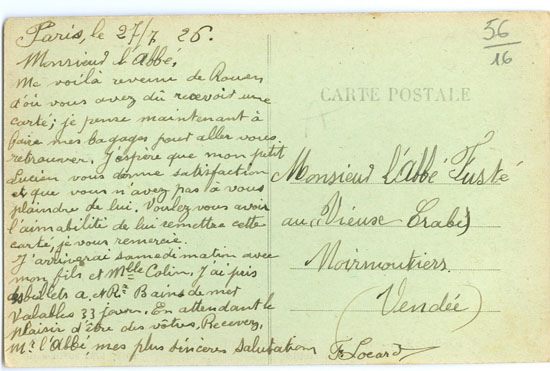 Paris, le 27/7 26.
Monsieur l'Abbé,
Me voilà revenu de Rouen
d'où vous avez dû recevoir une
carte; je pense maintenant à
faire mes bagages pour aller vous
retrouver. J'espère que mon petit
Lucien vous donne satisfaction
et que vous n'avez pas à vous
plaindre de lui. Voulez vous avoir
l'aimabilité de lui remettre cette
carte, je vous remercie.
J'arriverai samedi matin avec
mon fils et Melle Colin. J'ai pris
billets a. et R. Bains de mer
valables 33 jours. En attendant le
plaisir d'être des vôtres, Recevez,
Mr. l'Abbé, mes plus sincères salutations
F. Locard
56
16
CARTE POSTALE
Monsieur l'Abbé Fusté
au Vieuse
Noirmoutiers.
(Vendée)